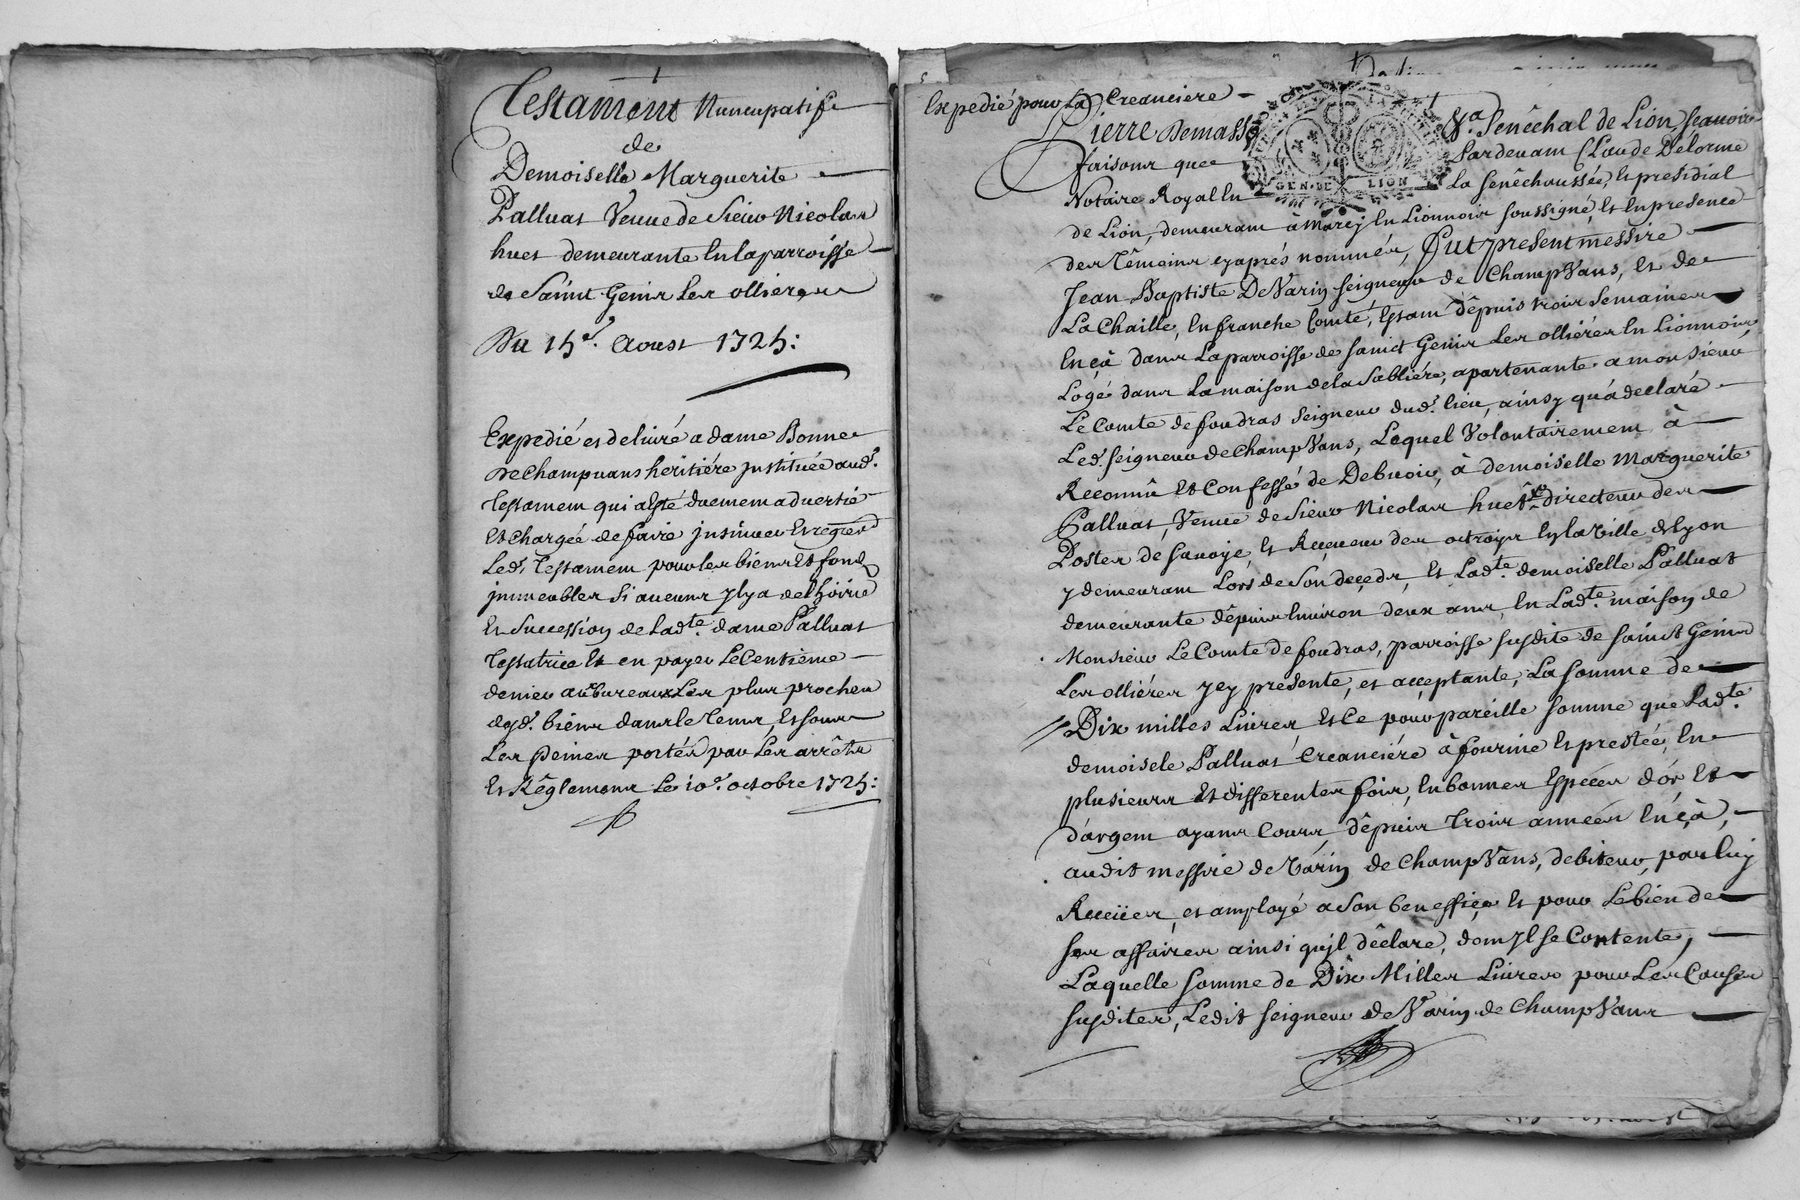 Testament Nuncupatif
de
Demoiselle Marguerite
Palluat Veuue de Sieur Nicolas
huet demeurante En la parroisse
de Saint Genis Les ollieres
Du 15e. Aoust 1725:
Expedié et deliuré a dame Bonne
De Champuans héritiére jnstituée aud.
Testament qui a esté duement aduertie
Et chargée de faire jnsinuer Et
Led. Testament pour les biens Et fonds
jmmeubles si aucuns jl y a de L'hoirie
Et Succession de Ladte. dame Palluat
Testatrice Et en payer Le Centième
denier aux bureaux Les plus proches
desd. biens dans le Tems, Et sous
Les peines portés par Les arrêts
Et Réglements Le 10e. octobre 1725:
Expedié pour La Creanciere
Pierre Demasso
Senéchal de Lion, Scauoir
faisons que
Pardeuant Claude Delorme
Notaire Royal En
La senéchaussée, Et presidial
GEN. DE LION
de Lion, demeurant à Marcy En Lionnois soussigné Et En presence
des Témoins cy aprés nommés, fut present messire
Jean Baptiste De Varin seigneur de ChampVans, et de
La Chaille, En franche Comté, Estant dépuis trois Semaines
En çà dans La parroisse de Sainct Genis Les olliéres En Lionnois,
Logé dans La maison de la Sabliére, apartenante a monsieur
Le Comte de foudras Seigneur dud. lieu, ainsy qu'a declaré
Led. Seigneur de ChampVans, Lequel Volontairement à
Reconnû Et Confessé de Debuoir, à demoiselle Marguerite
Palluat, Veuue de Sieur Nicolas huet directeur des
Postes de Sauoye, Et Receueur des octroys En la Ville de Lyon
y demeurant Lors de Son decedz, Et Ladte. demoiselle Palluat
demeurante dépuis Enuiron deux ans, En Ladte. maison de
Monsieur Le Comte de foudras, parroisse susdite de sainct Genis
Les olliéres jcy présente, et acceptante, La somme de
Dix milles Liures, Et Ce pour pareille somme que Ladte.
demoisele Palluat Creanciére à fournie Et prestée, En
plusieurs Et differentes fois, En bonnes Especes d'or Et
d'argent ayants Cours, dépuis trois années En çà,
audit messire de Varin de ChampVans, debiteur, par luy
Receües, et amployé a Son beneffice Et pour Le bien de
ses affaires ainsi qu'jl déclare, dont jl se Contente,
Laquelle somme de Dix Milles Liures pour Les Causes
susdites, Ledit seigneur de Varin de ChampVans